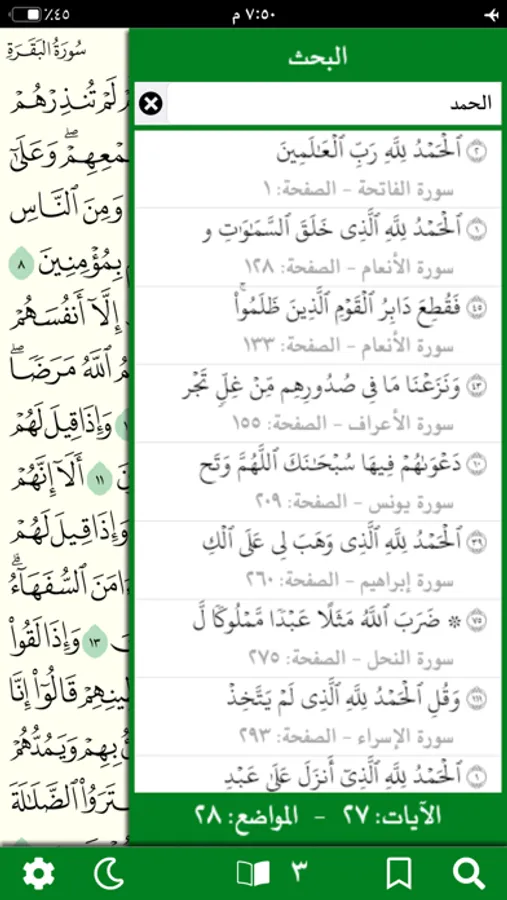 ٪٤٥
٧:٥٠ م
سُورَةُ البَقَرَةِ
لَمْ تُنذِرْهُمْ
وَعَلَىٰٓ
وَمِنَ ٱلنَّاسِ
بِمُؤْمِنِينَ ٨
إِلَّآ أَنفُسَهُمْ
ٱللَّهُ مَرَضًاۖ
وَإِذَا قِيلَ لَهُمْ
١١ أَلَآ إِنَّهُمْ
وَإِذَا قِيلَ لَهُمْ
ٱلسُّفَهَآءُۗ
١٣ وَإِذَا لَقُوا۟
قَالُوٓا۟ إِنَّا
بِهِمْ وَيَمُدُّهُمْ
ٱلضَّلَٰلَةَ
البحث
الحمد
٢ ٱلْحَمْدُ لِلَّهِ رَبِّ ٱلْعَٰلَمِينَ
سورة الفاتحة - الصفحة: ١
١ ٱلْحَمْدُ لِلَّهِ ٱلَّذِى خَلَقَ ٱلسَّمَٰوَٰتِ و
سورة الأنعام - الصفحة: ١٢٨
٤٥ فَقُطِعَ دَابِرُ ٱلْقَوْمِ ٱلَّذِينَ ظَلَمُوا۟ۚ
سورة الأنعام - الصفحة: ١٣٣
٤٣ وَنَزَعْنَا مَا فِى صُدُورِهِم مِّنْ غِلٍّۢ تَجْر
سورة الأعراف - الصفحة: ١٥٥
١٠ دَعْوَىٰهُمْ فِيهَا سُبْحَٰنَكَ ٱللَّهُمَّ وَتَح
سورة يونس - الصفحة: ٢٠٩
٣٩ ٱلْحَمْدُ لِلَّهِ ٱلَّذِى وَهَبَ لِى عَلَى ٱلْكِ
سورة إبراهيم - الصفحة: ٢٦٠
٧٥ ۞ ضَرَبَ ٱللَّهُ مَثَلًا عَبْدًۭا مَّمْلُوكًۭا لَّ
سورة النحل - الصفحة: ٢٧٥
١١١ وَقُلِ ٱلْحَمْدُ لِلَّهِ ٱلَّذِى لَمْ يَتَّخِذْ
سورة الإسراء - الصفحة: ٢٩٣
١ ٱلْحَمْدُ لِلَّهِ ٱلَّذِىٓ أَنزَلَ عَلَىٰ عَبْدِ
الآيات: ٢٧ - المواضع: ٢٨
٣